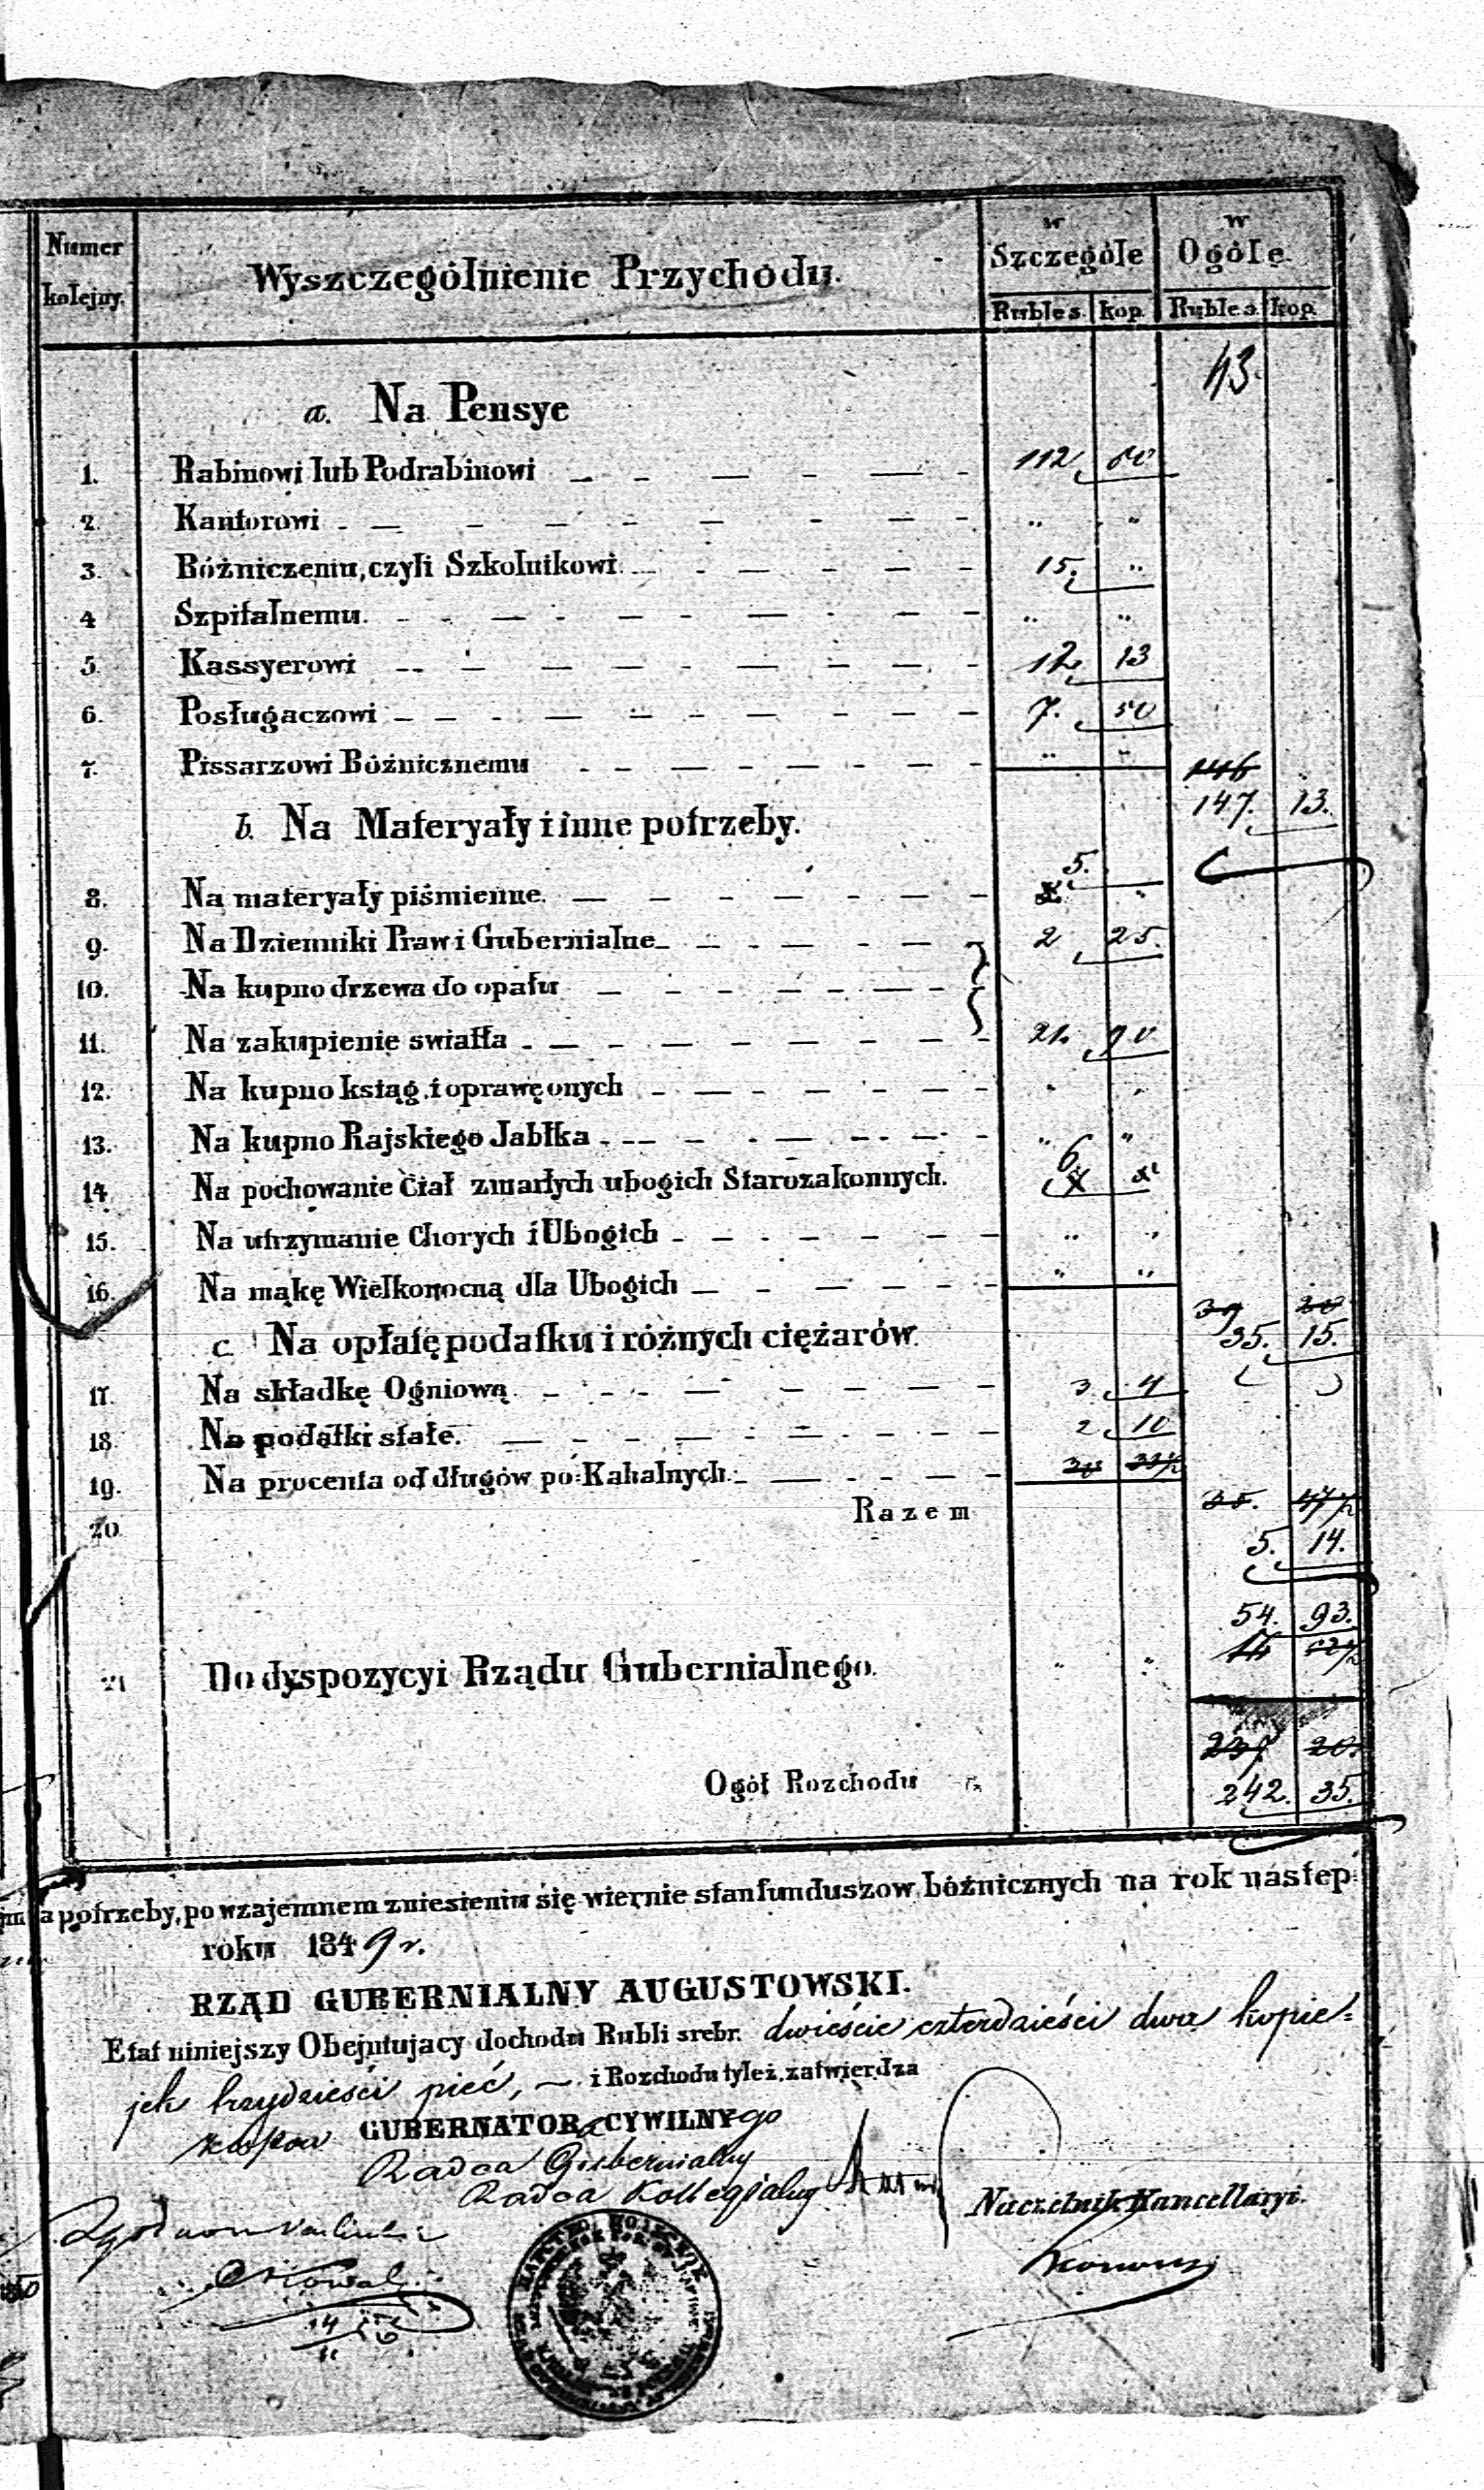 Numer kolejny.
Wyszczególnienie Przychodu.
w Szczególe
w Ogóle.
Rubles. kop. Rubles. kop.
43.
a. Na Pensye
1. Rabinowi lub Podrabinowi 112
2. Kantorowi " "
3. Bóżniczemu, czyli Szkolnikowi 15. "
4 Szpitalnemu. " "
5. Kassyerowi 12. 13
6. Posługaczowi 7. 50
7. Pissarzowi Bóżnicznemu " "
146
147. 13.
b. Na Materyały i inne potrzeby.
5.
8. Na materyały piśmienne. "
9. Na Dzienniki Praw i Gubernialne 2 25.
10. Na kupno drzewa do opału
11. Na zakupienie swiatła 21. 90
12. Na kupno ksiąg i oprawę onych " "
13. Na kupno Rajskiego Jabłka " "
6
14. Na pochowanie Ciał zmarłych ubogich Starozakonnych.
15. Na utrzymanie Chorych i Ubogich " "
16. Na mąkę Wielkonocną dla Ubogich " "
35. 15.
c. Na opłatę podatku i różnych ciężarów.
17. Na składkę Ogniową 3. 4
18. Na podatki stałe. 2 10
19. Na procenta od długów po=Kahalnych
20. Razem
5. 14.
54. 93.
21 Do dyspozycyi Rządu Gubernialnego. " "
237 20.
Ogół Rozchodu
242. 35.
a potrzeby, po wzajemnem zniesieniu się wiernie stan funduszow bóżnicznych na rok nastep:
roku 1849 r.
RZĄD GUBERNIALNY AUGUSTOWSKI.
Etat niniejszy Obejmujacy dochodu Rubli srebr. dwieście czterdzieści dwa kopie=
jek trzydzieści pięć, — i Rozchodu tyleż, zatwierdza
GUBERNATORA CYWILNYgo
Radca Gubernialny
Radca Kollegjalny
Naczelnik Kancellaryi.